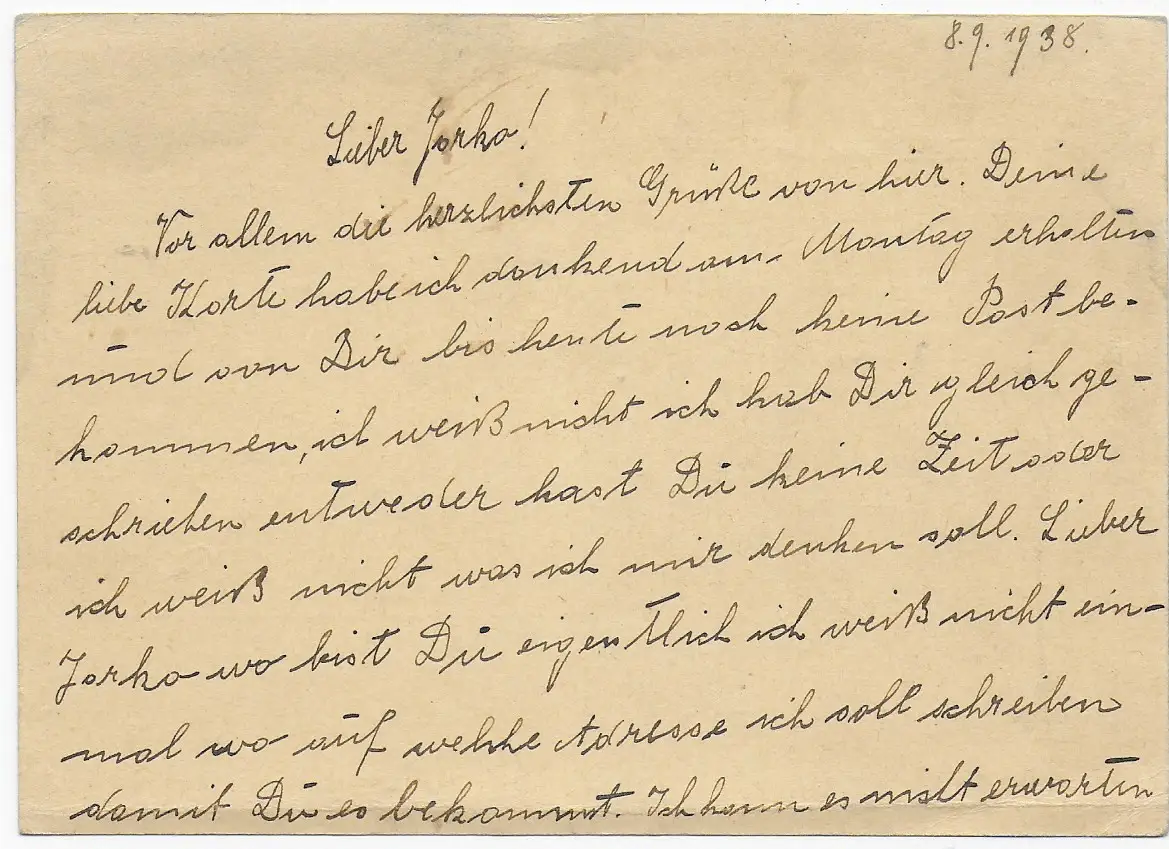 8.9.1938.
Lieber Jorko!
Vor allem die herzlichsten Grüße von hier. Deine
liebe Korte habe ich dankend am Montag erhalten
und von Dir bis heute noch keine Post be-
kommen, ich weiß nicht ich hab Dir gleich ge-
schrieben entweder hast Du keine Zeit oder
ich weiß nicht was ich mir denken soll. Lieber
Jorko wo bist Du eigentlich ich weiß nicht ein-
mal wo auf welche Adresse ich soll schreiben
damit Du es bekommst. Ich kann es nicht erwarten